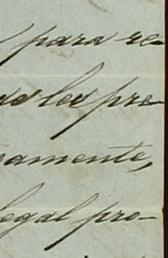 para re-
do los pre-
amente,
legal pro-